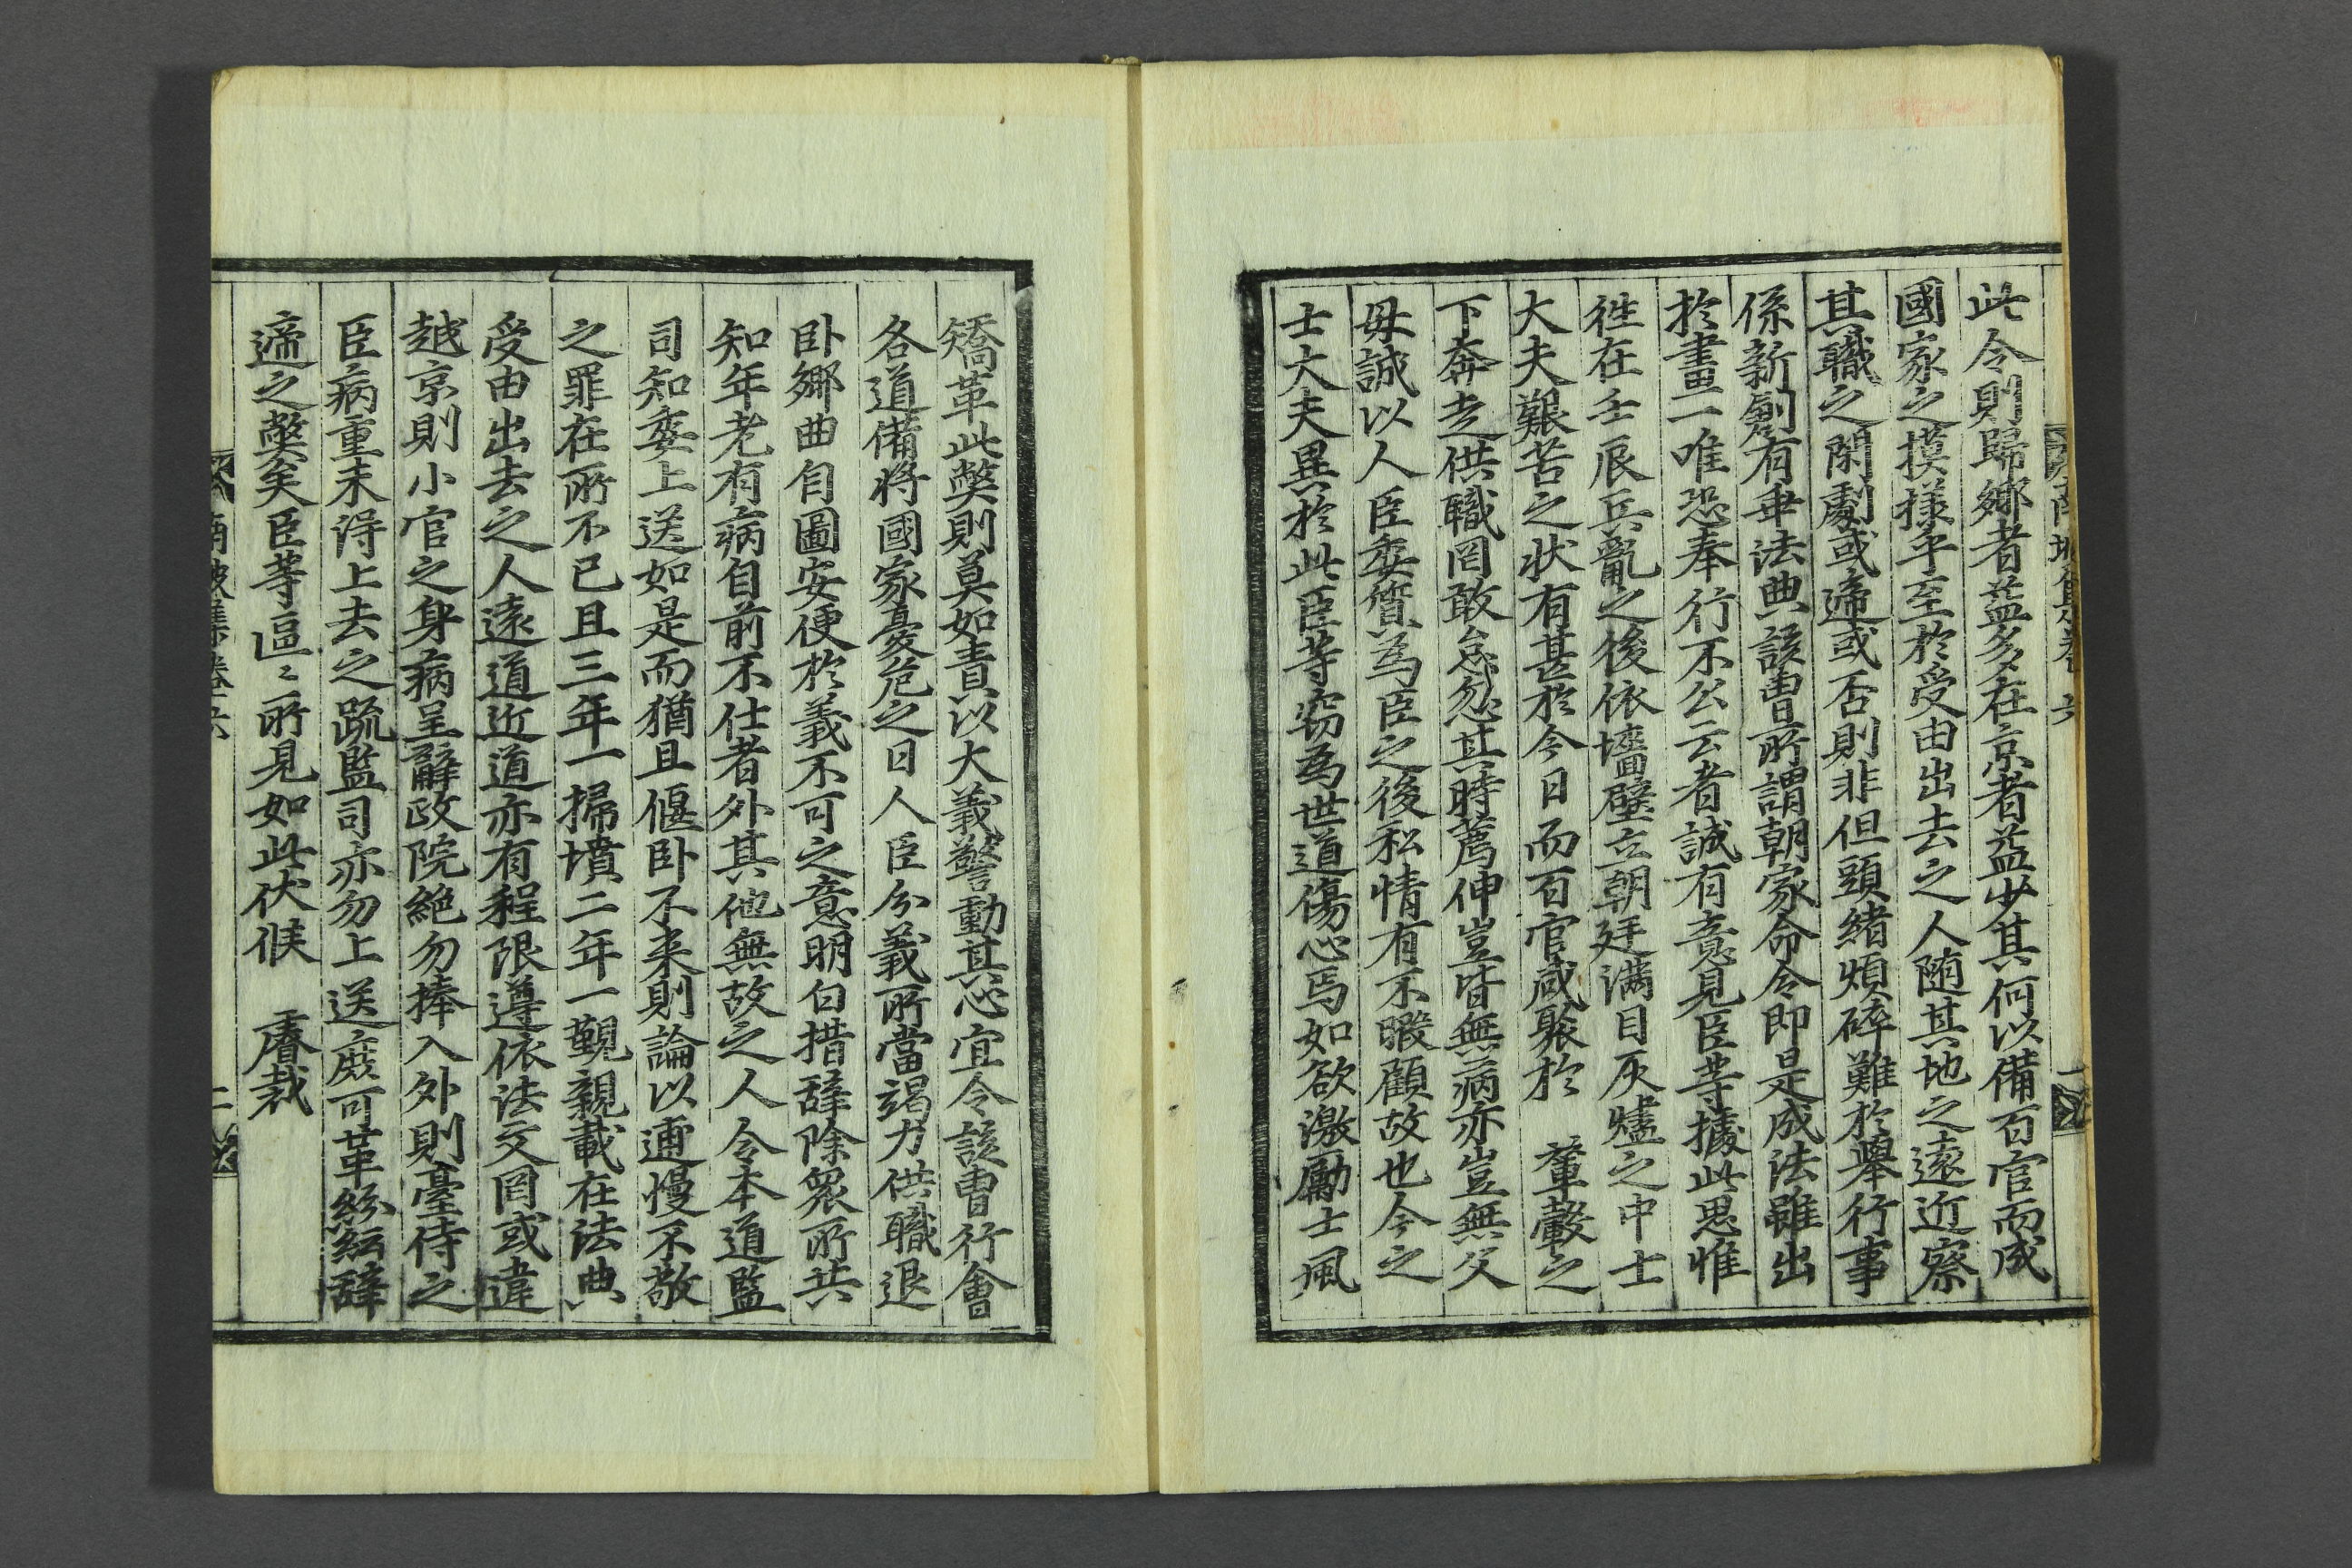 此令則歸鄉者益多在京者益少其何以備百官而成
國家之摸樣乎至於受由出去之人随其地之遠近察
其職之閑劇或遆或否則非但頭緖煩碎難於擧行事
係新創有乖法典該曹所謂朝家命令卽是成法雖出
於畫一唯恐奉行不公云者誠有意見臣等據此思惟
徃在壬辰兵亂之後依墻壁立朝廷滿目灰燼之中士
大夫艱苦之狀有甚於今日而百官咸聚於　輦轂之
下奔走供職罔敢怠忽其時薦伸豈皆無病亦豈無父
毋誠以人臣委質爲臣之後私情有不暇顧故也今之
士大夫異於此臣等竊爲世道傷心焉如欲激勵士風
矯革此獘則莫如責以大義警動其心宜令該曹行會
各道備將國家憂危之日人臣分義所當竭力供職退
卧鄉曲自圖安便於義不可之意明白措辭除衆所共
知年老有病自前不仕者外其他無故之人令本道監
司知委上送如是而猶且偃卧不来則論以逋慢不敬
之罪在所不已且三年一掃墳二年一覲親載在法典
受由出去之人遠道近道亦有程限遵依法文罔或違
越京則小官之身病呈辭政院絶勿捧入外則臺侍之
臣病重未得上去之疏監司亦勿上送庶可革紛紜辭
遆之獘矣臣等區〻所見如此伏候　睿裁
南坡集卷六
二